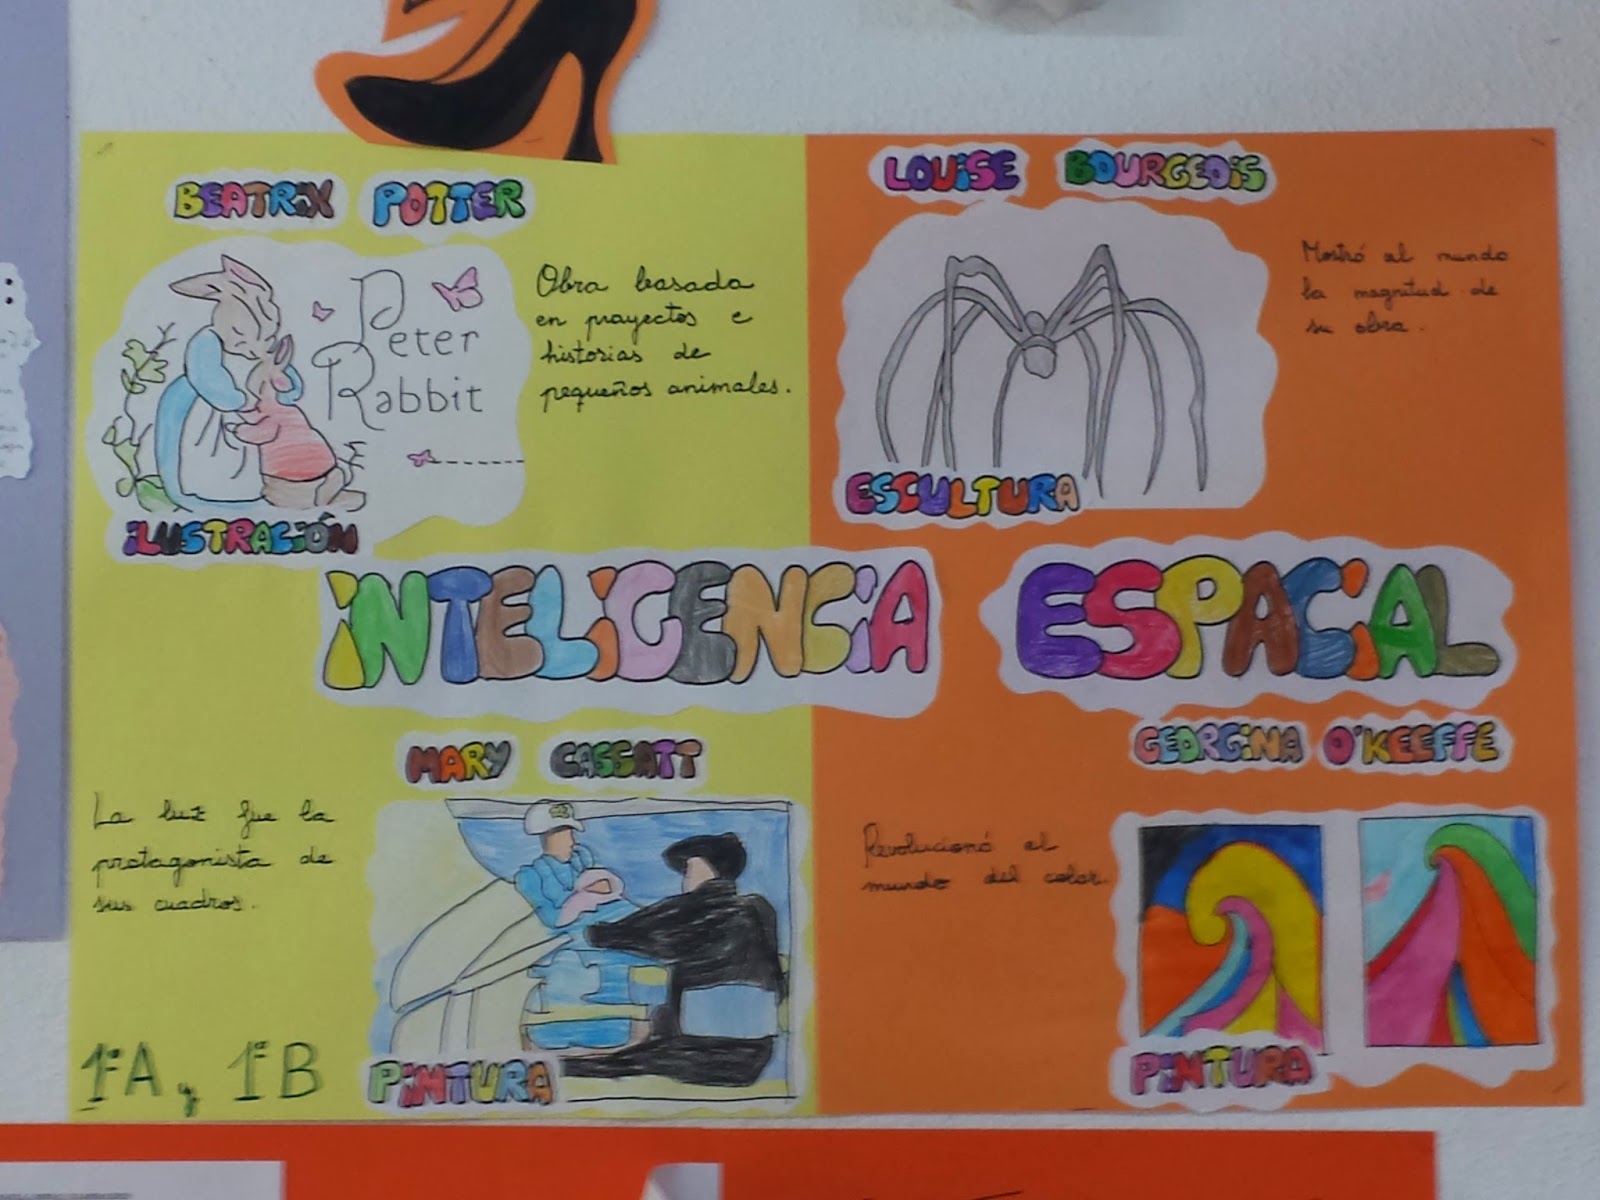 BEATRIX POTTER
Peter
Rabbit
Obra basada
en proyectos e
historias de
pequeños animales.
iLUSTRACiÓN
LOUiSE BOURGEOiS
Mostró al mundo
la magnitud de
su obra.
ESCULTURA
iNTELiGENCiA ESPACiAL
MARY CASSATT
La luz fue la
protagonista de
sus cuadros.
PiNTURA
1ºA y 1ºB
GEORGiNA O'KEEFFE
Revolucionó el
mundo del color.
PiNTURA